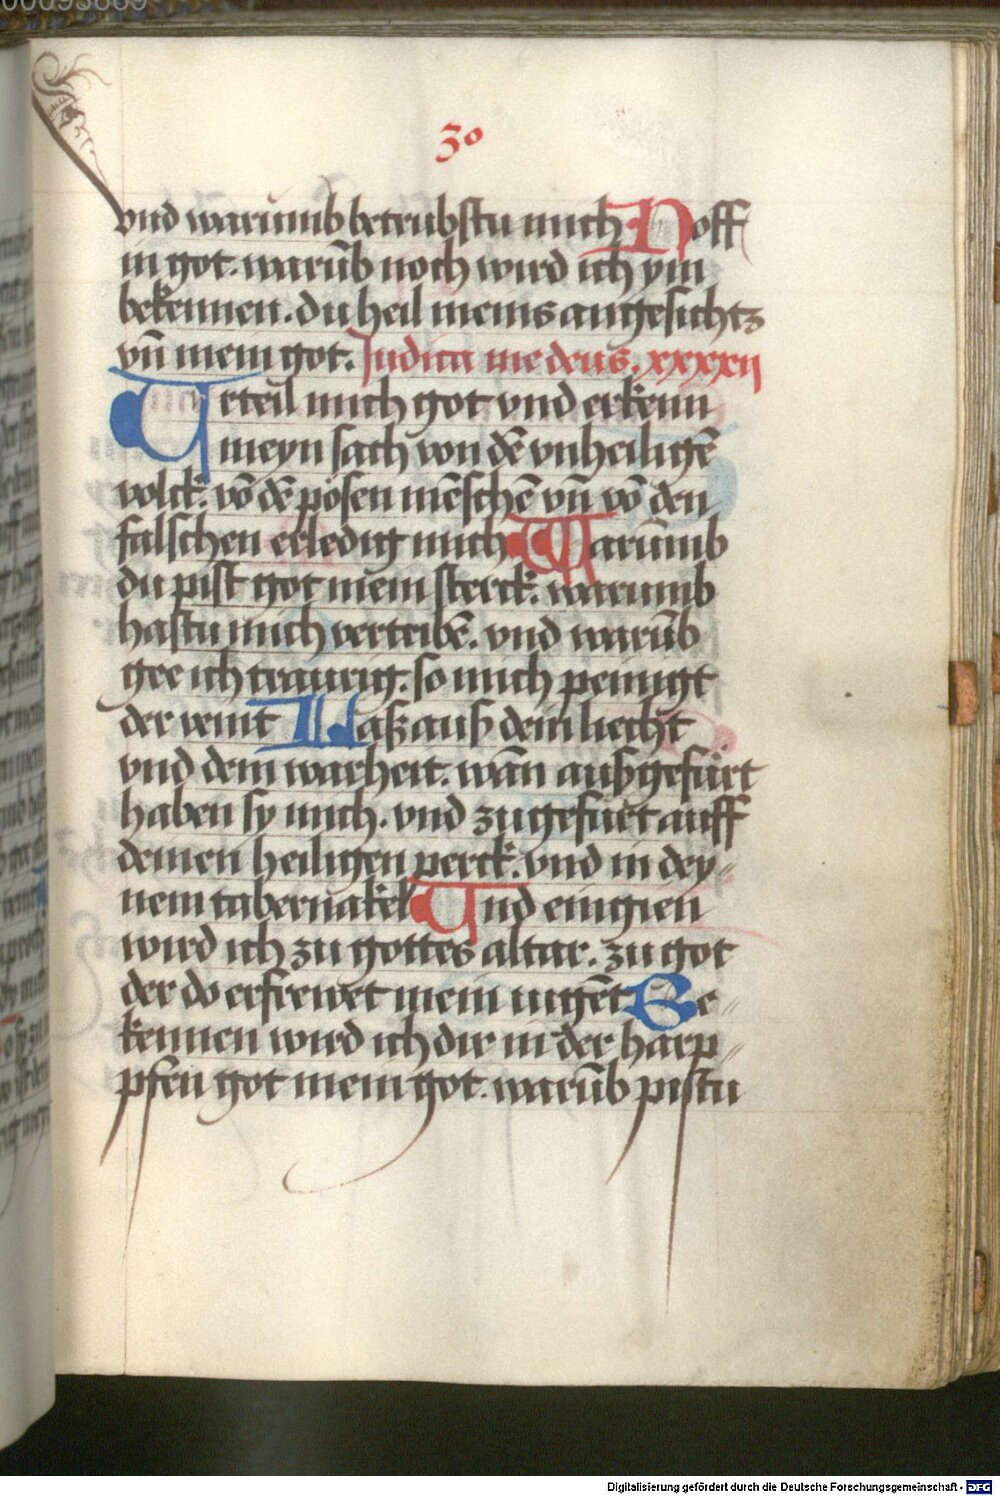 30
vnd warumb betrubstu mich Hoff
in got. warūb noch wird ich ym
bekennen. du heil meins angesichtz
vn̄ mein got. Judica me deus. xxxxii
Urteil mich got vnd erkenn
meyn sach von dē vnheiligē
volck. vō dē posen mēschē vn̄ vō den
falschen erledig mich Warumb
du pist got mein sterck. warumb
hastu mich vertribē. vnd warūb
gee ich traurig. so mich peinigt
der veint Laß auß dein liecht
vnd dein warheit. wān außgefürt
haben sy mich. vnd zugefürt auff
deinen heiligen perck. vnd in dey//
nem tabernakel Und eingien
wird ich zu gottes altar. zu got
der do erfrewet mein iugēt Be//
kennen wird ich dir in der harp//
pfen got mein got. warūb pistu
Digitalisierung gefördert durch die Deutsche Forschungsgemeinschaft - DFG